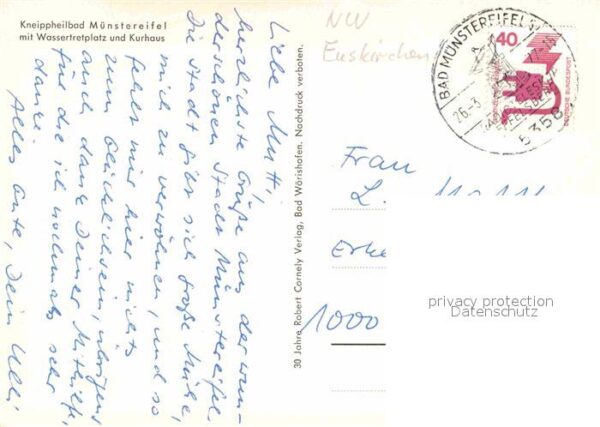 Kneippheilbad Münstereifel
mit Wassertretplatz und Kurhaus
Liebe Mutti,
herzlichste Grüße aus der wun-
derschönen Stadt Münstereifel.
Die Stadt gibt sich große Mühe,
mich zu verwöhnen, und so
fehlt mir hier nichts
zum Glücklichsein, übrigens
auch dank Deiner Mithilfe,
für die ich nochmals sehr
danke.
Alles Gute, Dein Ulli
30 Jahre Robert Cornely Verlag, Bad Wörishofen. Nachdruck verboten.
NW
Euskirchen
BAD MÜNSTEREIFEL
26.3.
5358
40
DEUTSCHE BUNDESPOST
Frau
L.
Erke
1000
privacy protection
Datenschutz